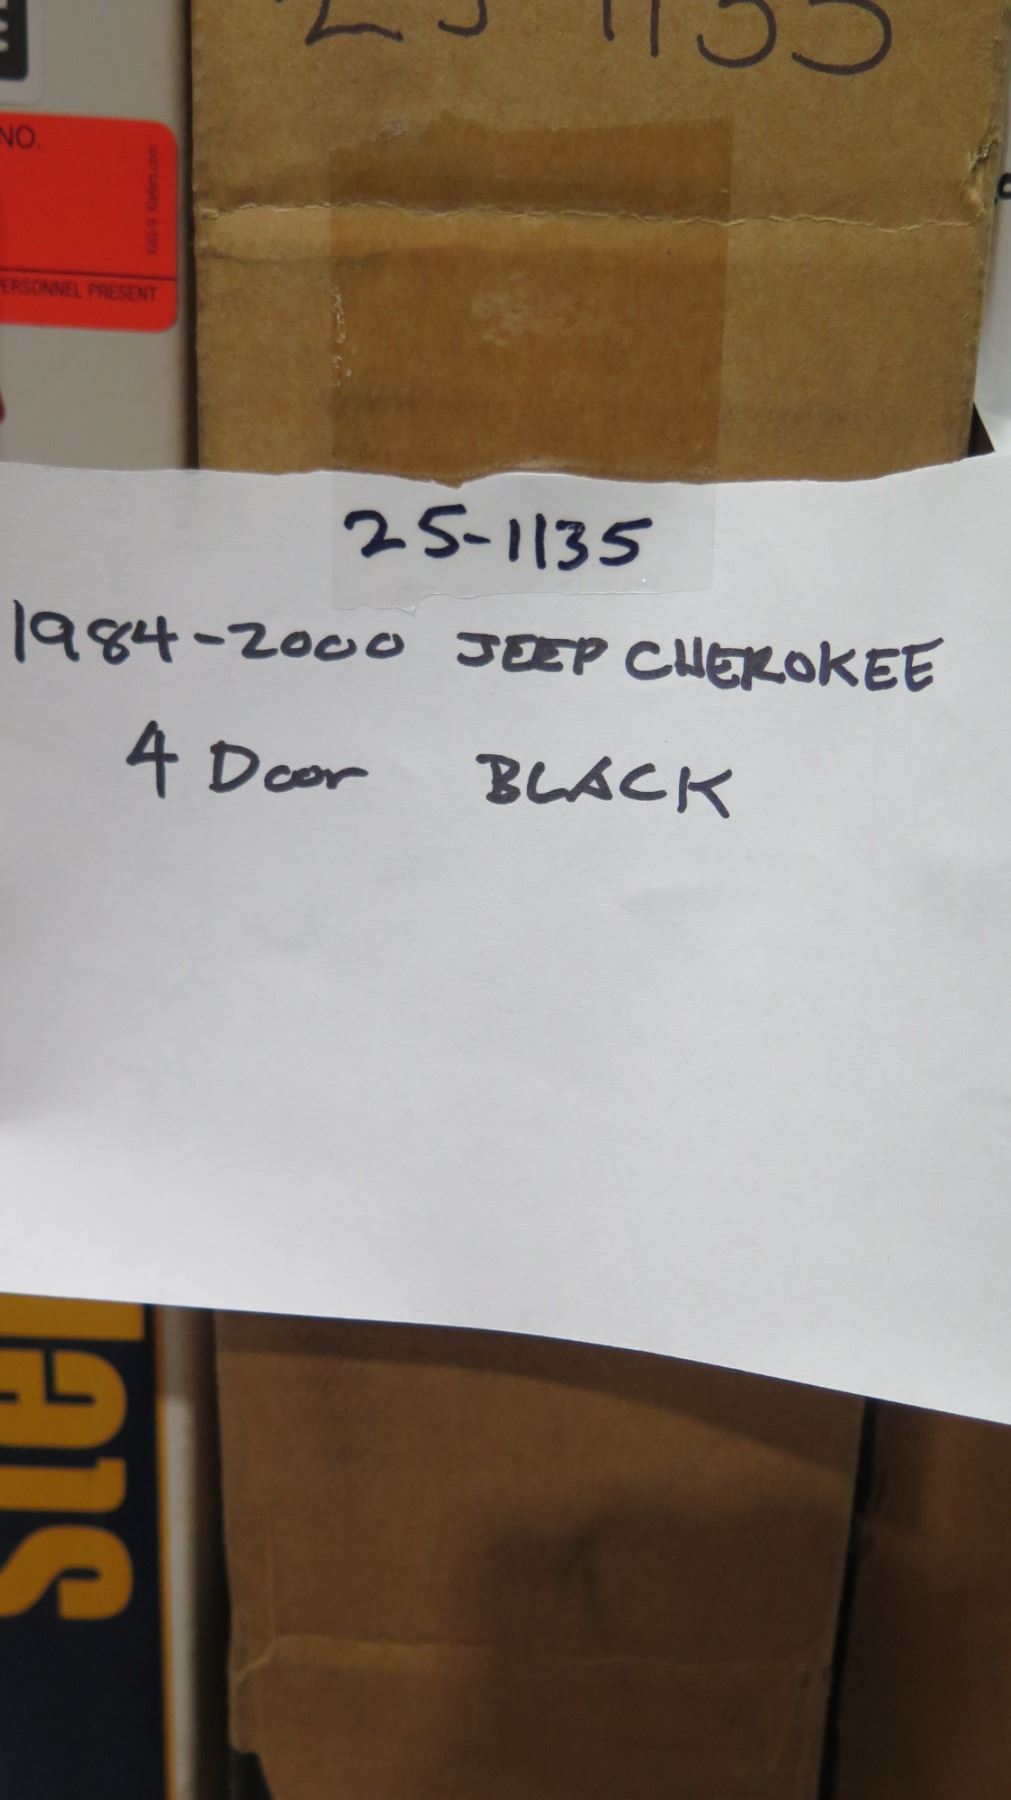 25-1135
NO.
ERSONNEL PRESENT
25-1135
1984-2000 JEEP CHEROKEE
4 Door BLACK